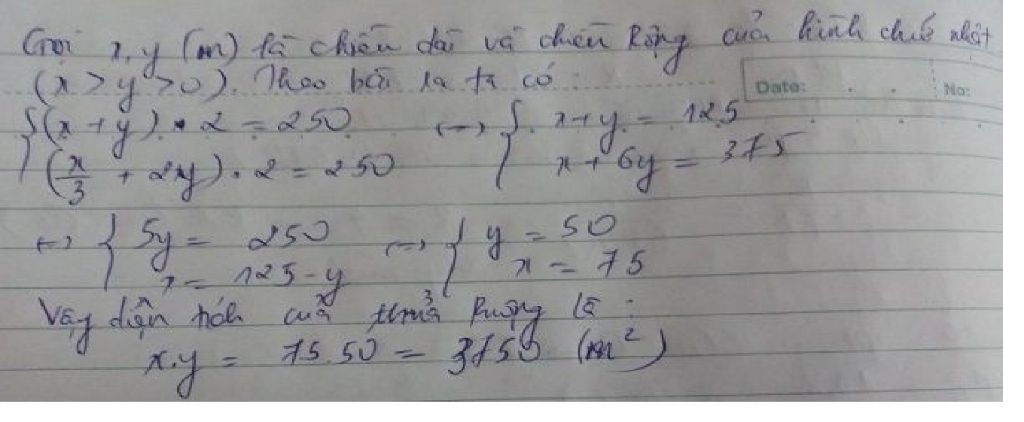 Gọi x, y (m) là chiều dài và chiều rộng của hình chữ nhật
(x > y > 0). Theo bài ra ta có :
Date: No:
{ (x + y) . 2 = 250 <-> { x + y = 125
(x/3 + 2y) . 2 = 250 x + 6y = 375
<-> { 5y = 250 <-> { y = 50
x = 125 - y x = 75
Vậy diện tích của thửa ruộng là :
x.y = 75.50 = 3750 (m²)